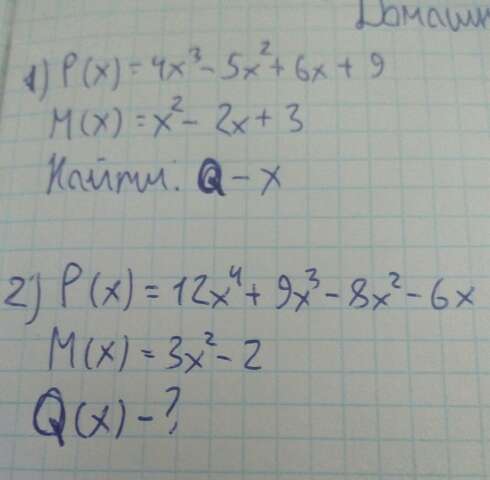 Домашн
1) P(x) = 4x³ - 5x² + 6x + 9
M(x) = x² - 2x + 3
Найти: Q - x
2) P(x) = 12x⁴ + 9x³ - 8x² - 6x
M(x) = 3x² - 2
Q(x) - ?